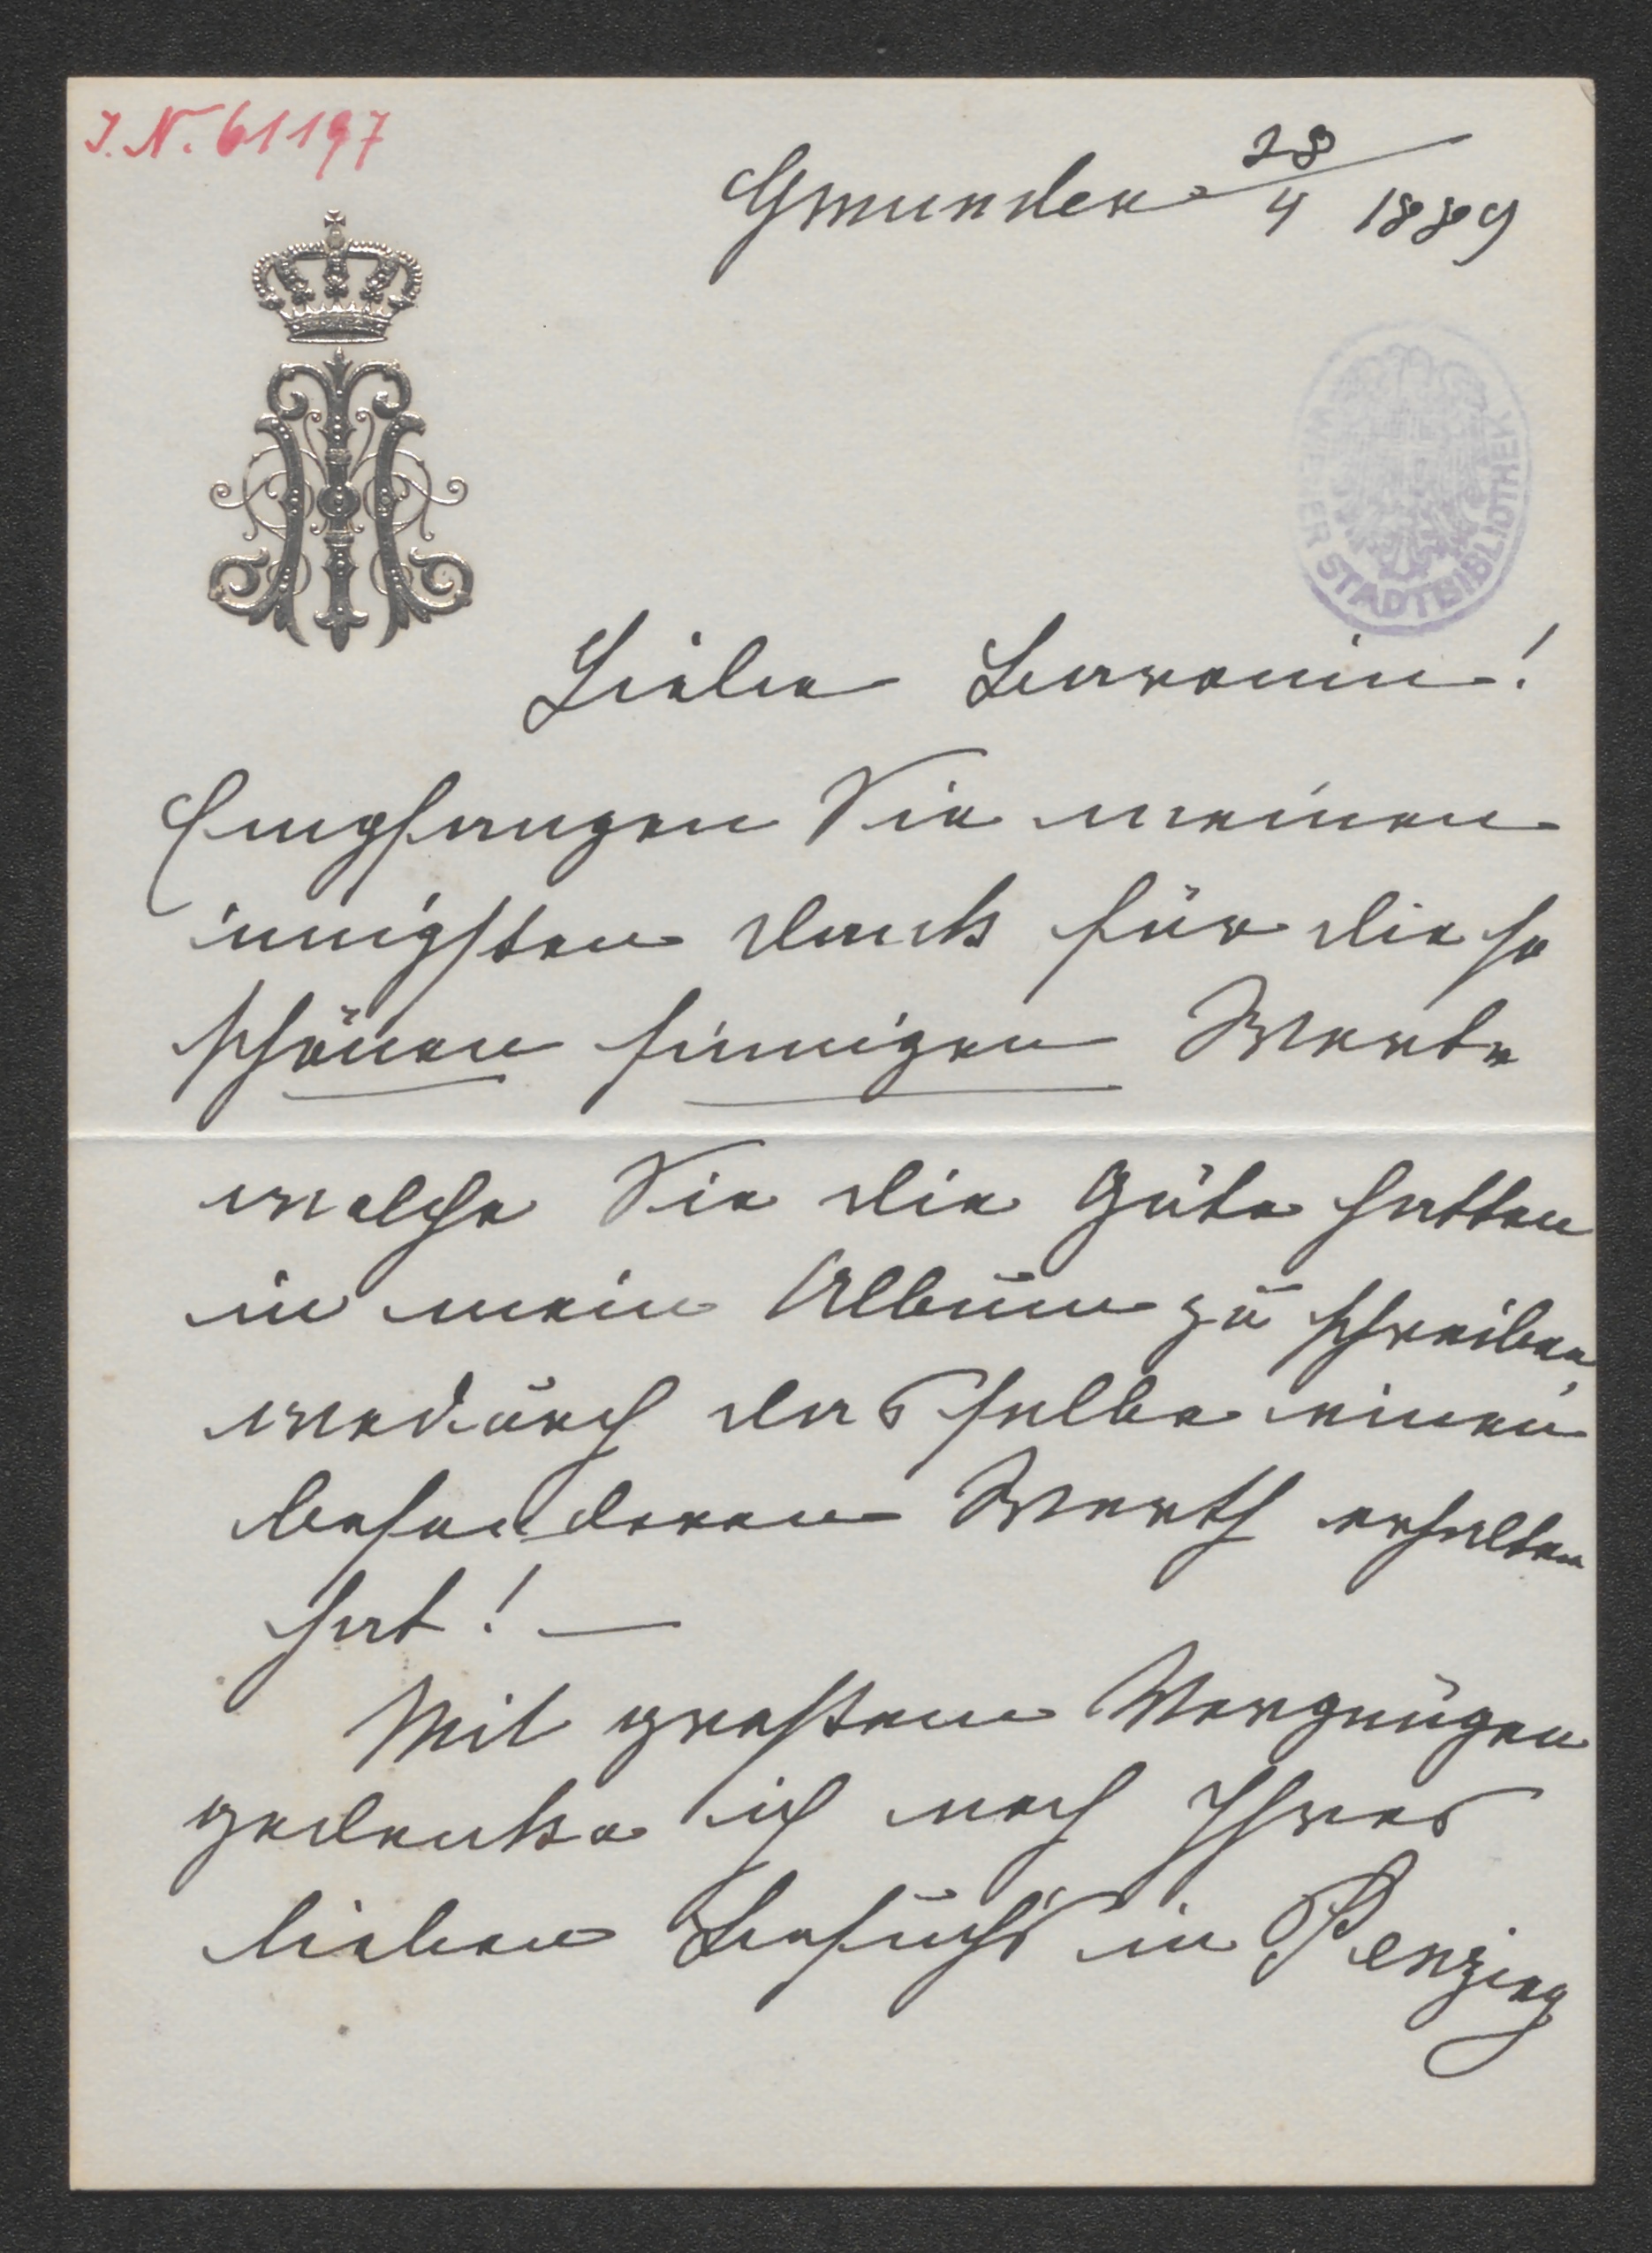 I. N. 61197
Gmunden 28/4 1889
WIENER STADTBIBLIOTHEK
Liebe Baronin!
Empfangen Sie meinen
innigsten Dank für die so
schönen sinnigen Worte
welche Sie die Güte hatten
in mein Album zu schreiben,
wodurch dasselbe einen
besonderen Werth erhalten
hat! —
Mit großem Vergnügen
gedenke ich noch Ihres
lieben Besuchs in Penzing